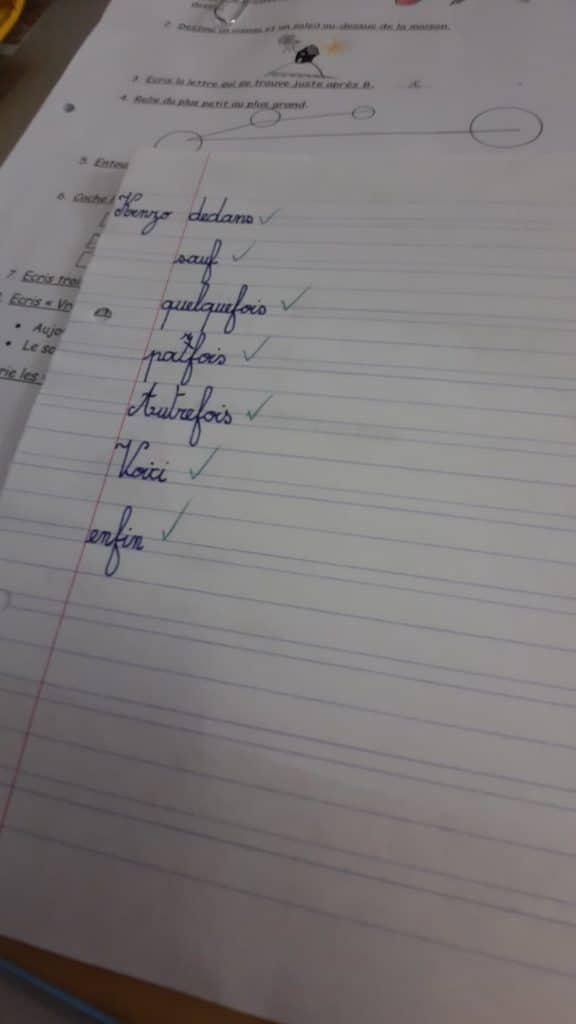 2. Dessine un nuage et un soleil au-dessus de la maison.
3. Ecris la lettre qui se trouve juste après B.
4. Relie du plus petit au plus grand.
5. Entou
6. Coche
7. Ecris troi
Ecris « Vr
• Aujo
• Le so
rie les
Kenzo dedans
sauf
quelquefois
parfois
Autrefois
Voici
enfin